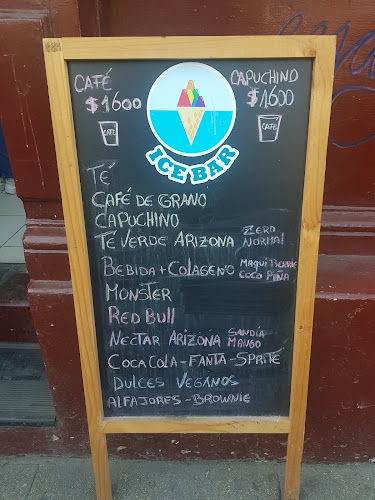 CAFÉ
$1600
CAFE
CAPUCHINO
$1600
CAFE
ICE BAR
TÉ
CAFÉ DE GRANO
CAPUCHINO
TÉ VERDE ARIZONA ZERO
NORMAL
BEBIDA + COLAGENO MAQUI BERRIE
COCO PIÑA
MONSTER
RED BULL
NECTAR ARIZONA SANDÍA
MANGO
COCA COLA - FANTA - SPRITE
DULCES VEGANOS
ALFAJORES - BROWNIE